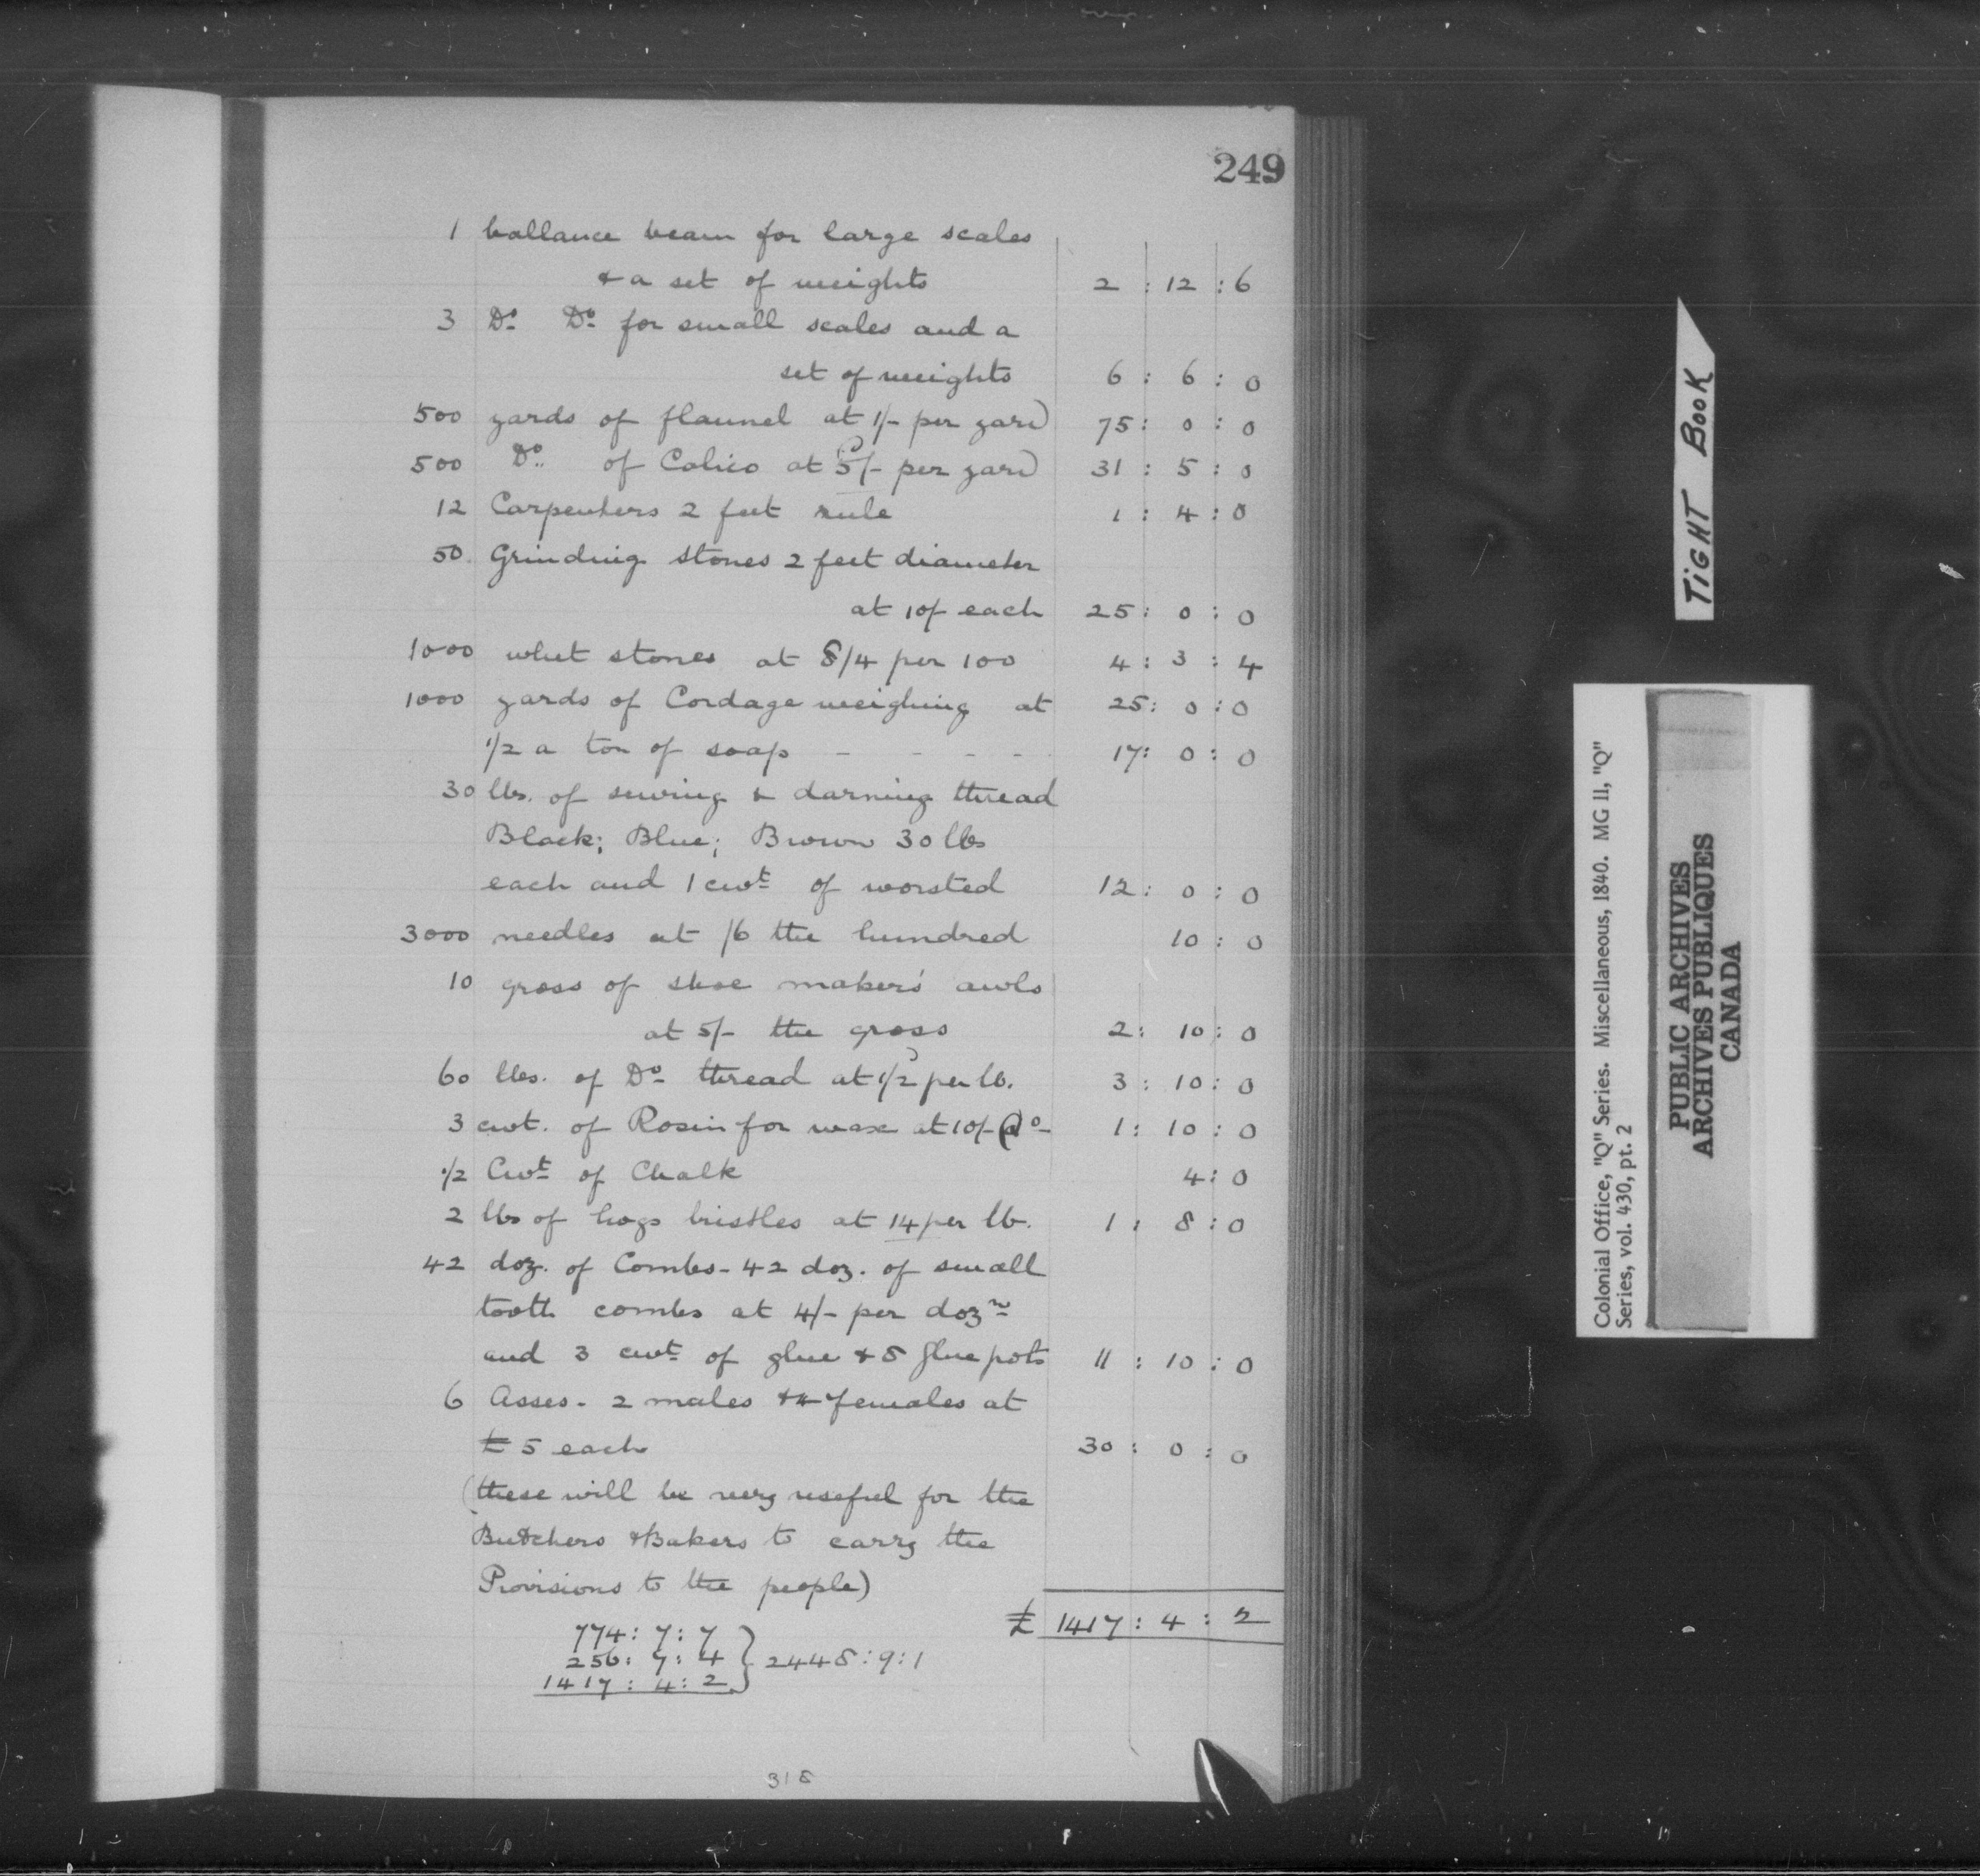 249
1 ballance beam for large scales
& a set of weights 2 : 12 : 6
3 Do. Do. for small scales and a
set of weights 6 : 6 : 0
500 yards of flannel at 1/- per yard 75 : 0 : 0
500 Do. of Calico at 5/- per yard 31 : 5 : 0
12 Carpenters 2 feet rule 1 : 4 : 0
50. Grinding stones 2 feet diameter
at 10/ each 25 : 0 : 0
1000 whet stones at 8/4 per 100 4 : 3 : 4
1000 yards of Cordage weighing at 25 : 0 : 0
1/2 a ton of soap - - - - 17 : 0 : 0
30 lbs. of sewing & darning thread
Black; Blue; Brown 30 lbs
each and 1 cwt of worsted 12 : 0 : 0
3000 needles at /6 the hundred 10 : 0
10 gross of shoe makers' awls
at 5/- the gross 2 : 10 : 0
60 lbs. of Do. thread at 1/2 per lb. 3 : 10 : 0
3 cwt. of Rosin for wax at 10/- do 1 : 10 : 0
1/2 Cwt of Chalk 4 : 0
2 lbs of hogs bristles at 14 per lb. 1 : 8 : 0
42 doz. of Combs - 42 doz. of small
tooth combs at 4/- per dozn
and 3 cwt of glue & 8 glue pots 11 : 10 : 0
6 Asses - 2 males & 4 females at
£5 each 30 : 0 : 0
(these will be very useful for the
Butchers & Bakers to carry the
Provisions to the people)
£ 1417 : 4 : 2
774 : 7 : 7
256 : 7 : 4 } 2448 : 9 : 1
1417 : 4 : 2
318
TIGHT BOOK
Colonial Office, "Q" Series. Miscellaneous, 1840. MG 11, "Q"
Series, vol. 430, pt. 2
PUBLIC ARCHIVES
ARCHIVES PUBLIQUES
CANADA